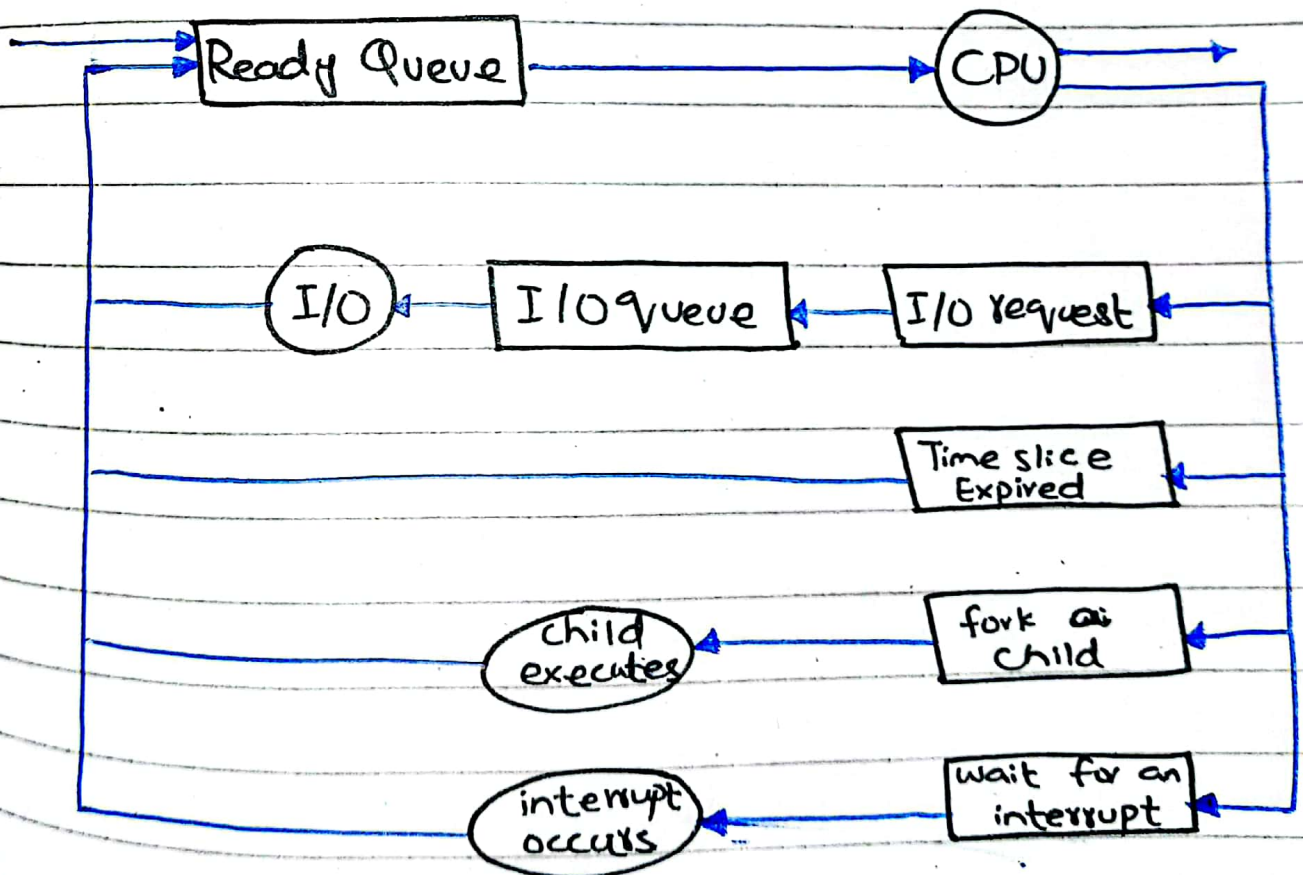 Ready Queue
CPU
I/O
I/O queue
I/O request
Time slice
Expired
child
executes
fork a
child
interrupt
occurs
wait for an
interrupt